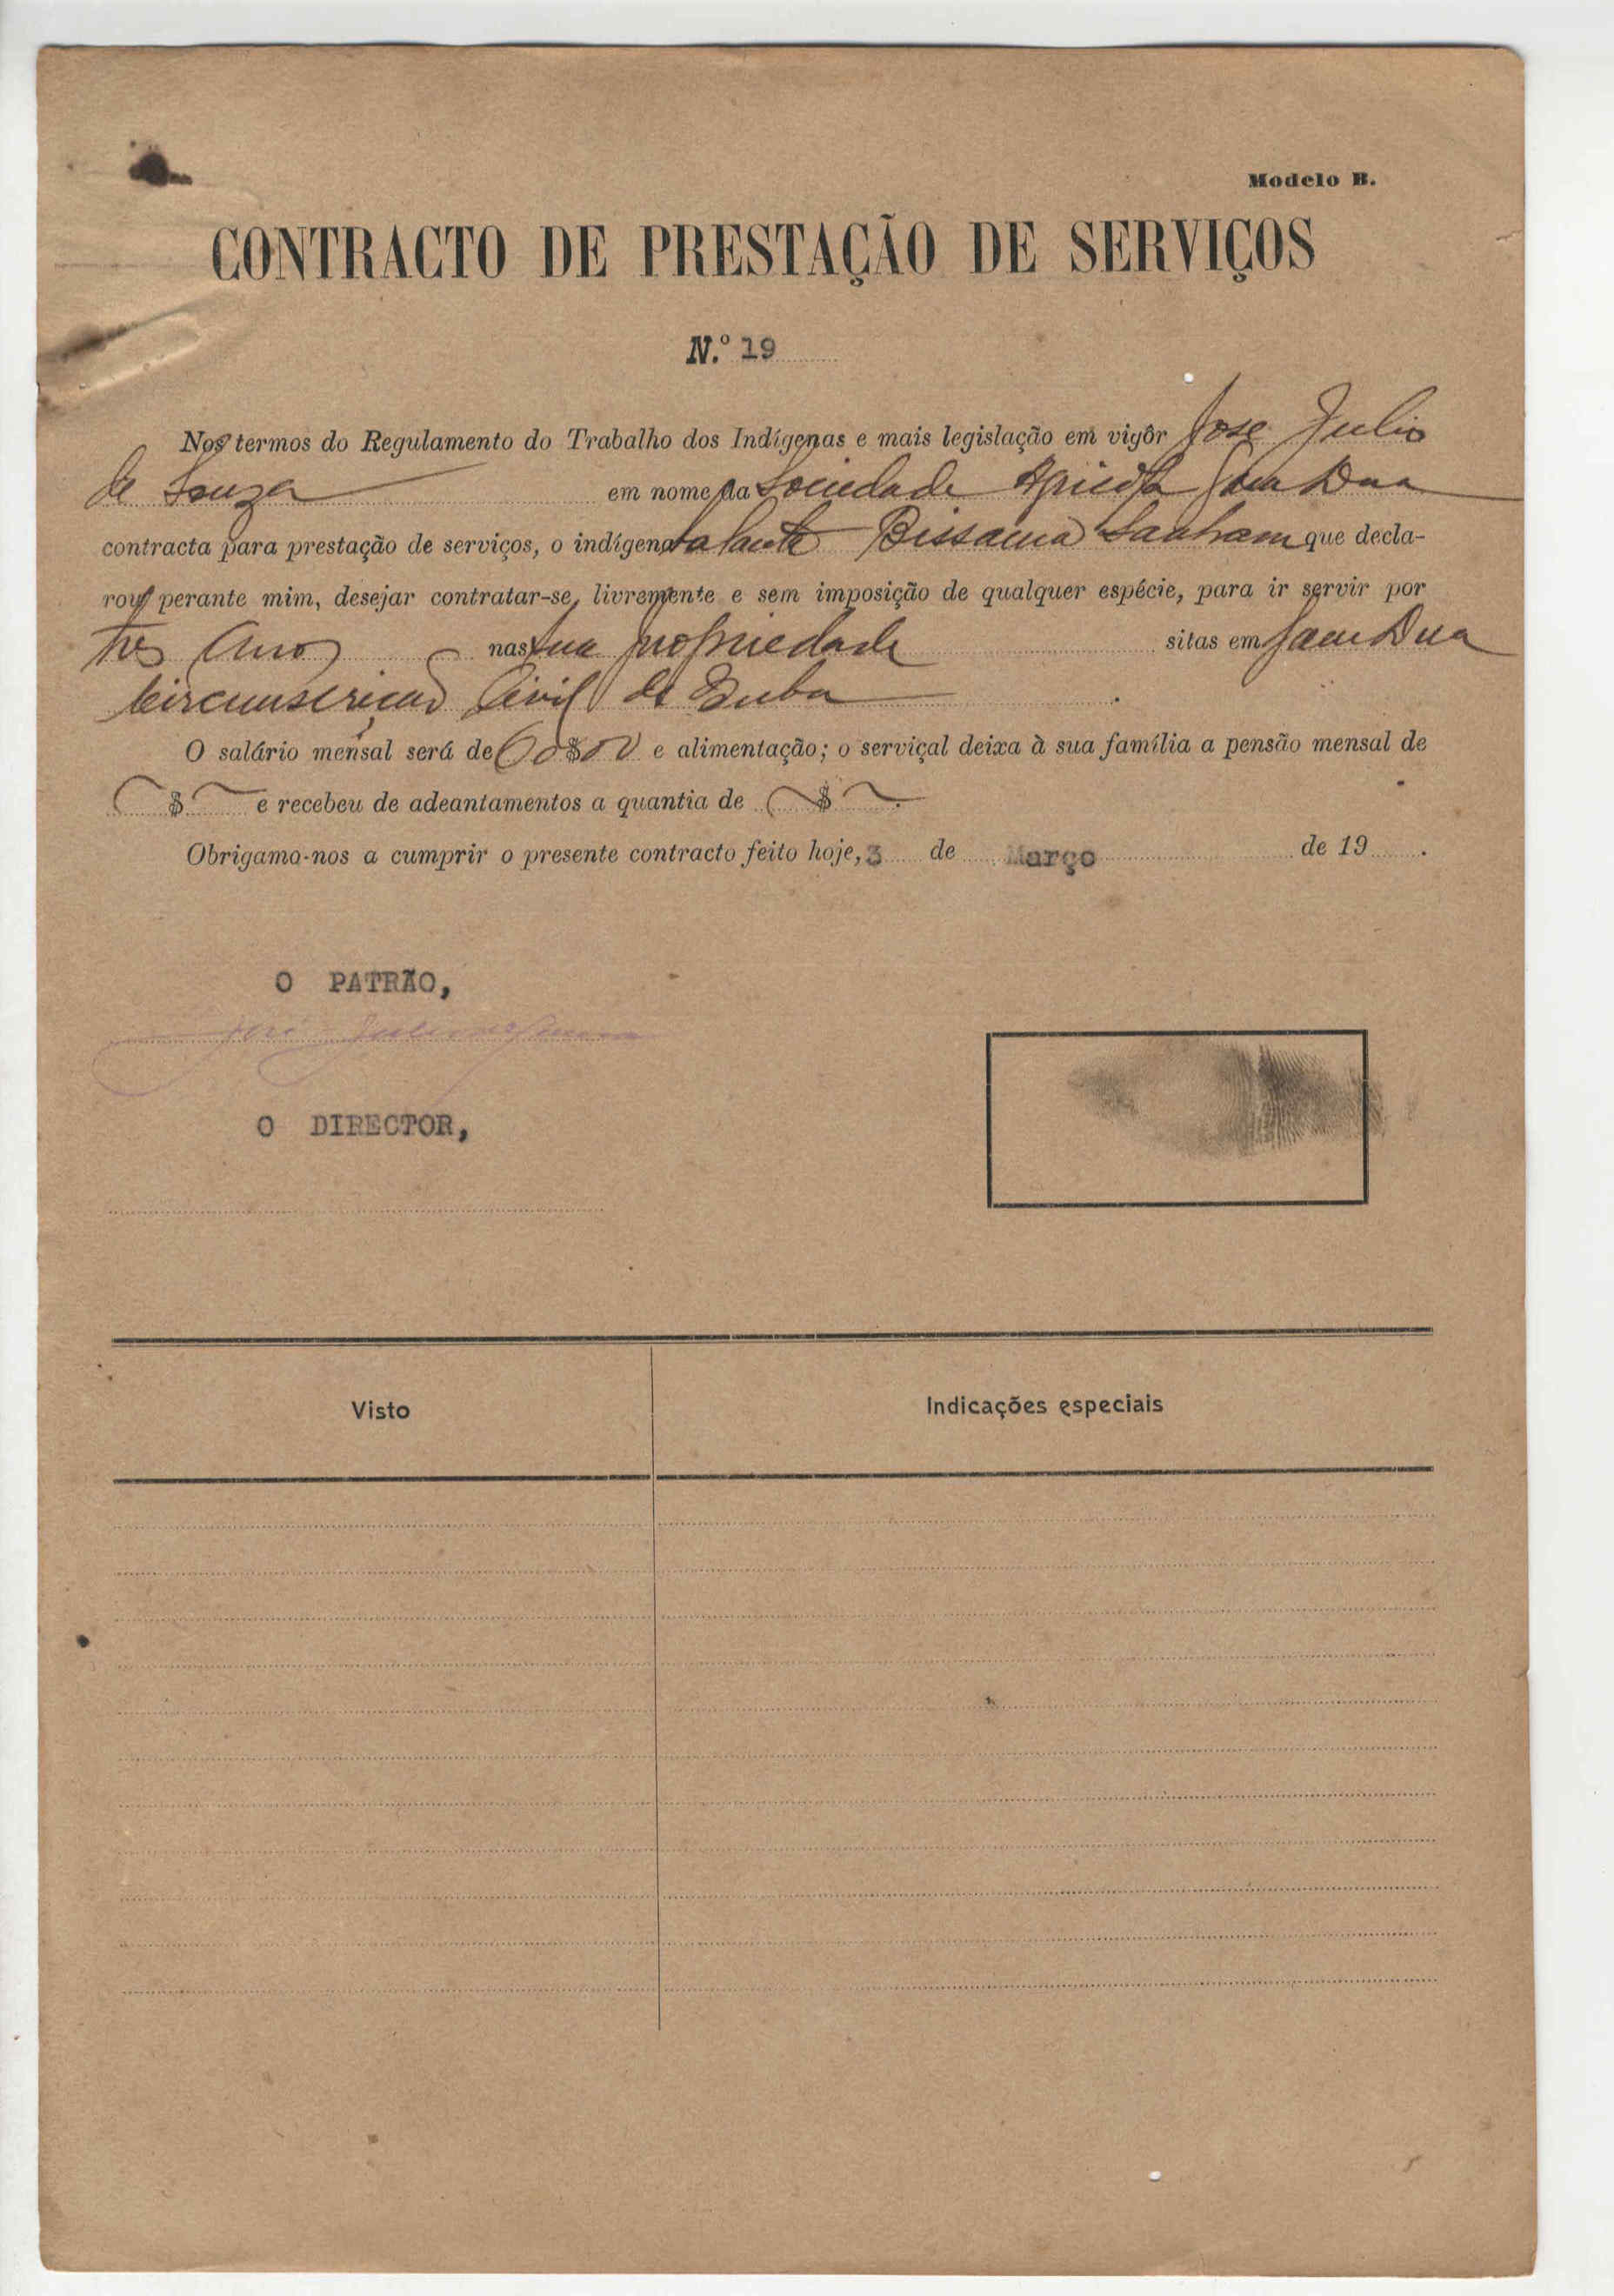 Modelo B.
CONTRACTO DE PRESTAÇÃO DE SERVIÇOS
N.º 19
Nos termos do Regulamento do Trabalho dos Indígenas e mais legislação em vigôr Jose Julio
de Souza em nome da Sociedade Agricola Gam Dua
contracta para prestação de serviços, o indígena Bissau que decla-
rou perante mim, desejar contratar-se, livremente e sem imposição de qualquer espécie, para ir servir por
tres Anos nas sua propriedade sitas em Gam Dua
Circunscrição Civil de Buba
O salário mensal será de 60$00 e alimentação; o serviçal deixa à sua família a pensão mensal de
$ e recebeu de adeantamentos a quantia de $ .
Obrigamo-nos a cumprir o presente contracto feito hoje, 3 de Março de 19 .
O PATRÃO,
José Julio de Souza
O DIRECTOR,
Visto Indicações especiais